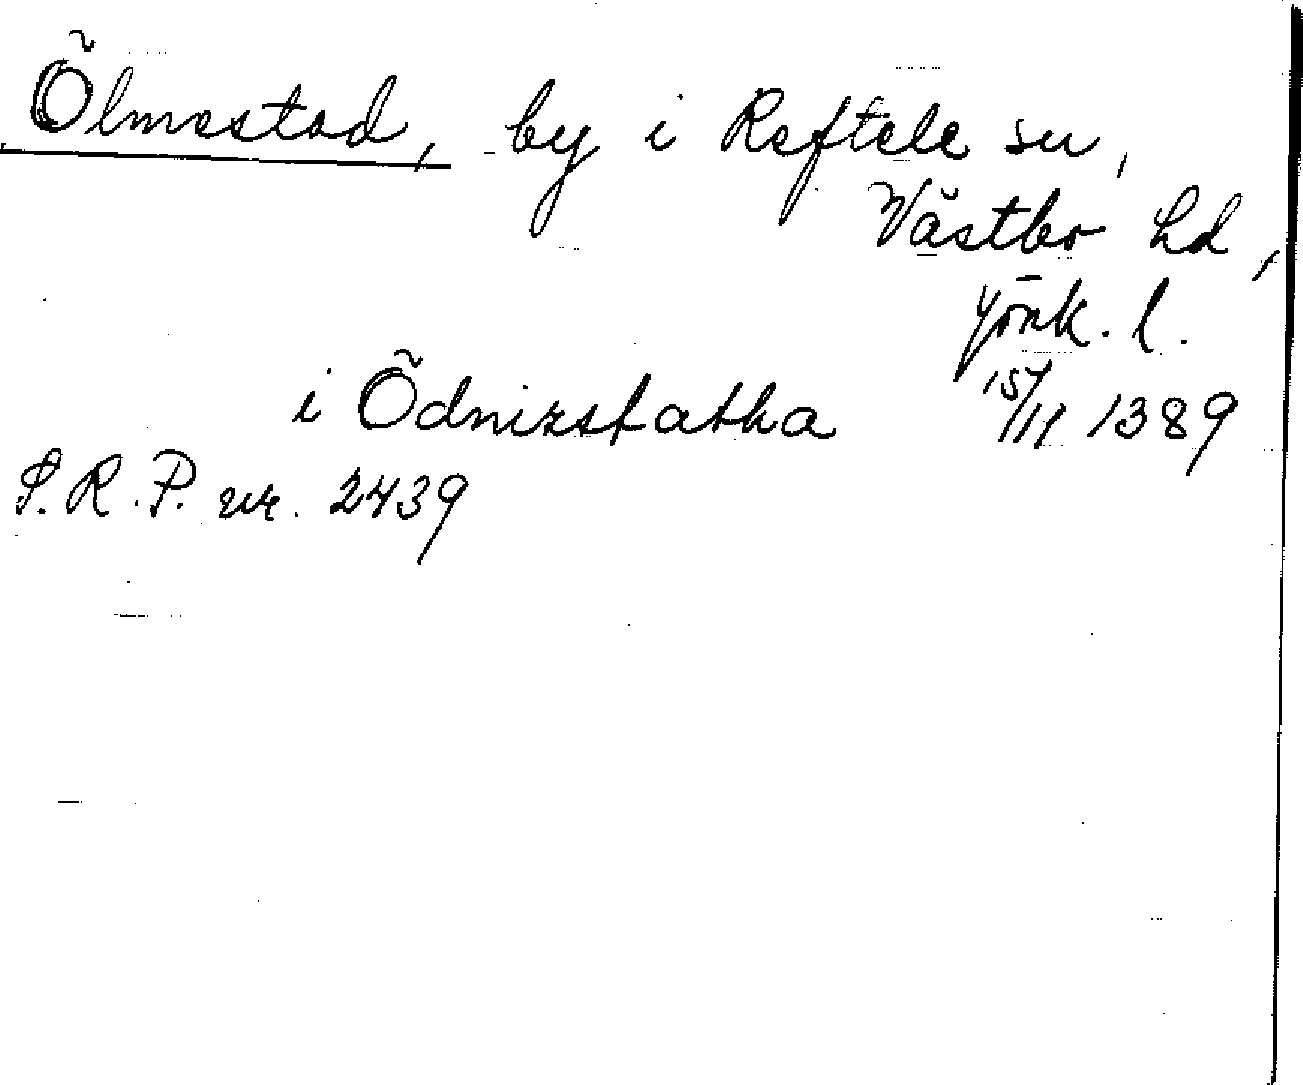 Ölmestad, by i Reftele sn,
Västbo hd,
Jönk. l.
i Ödnizstatha 15/11 1389
S.R.P. nr. 2439